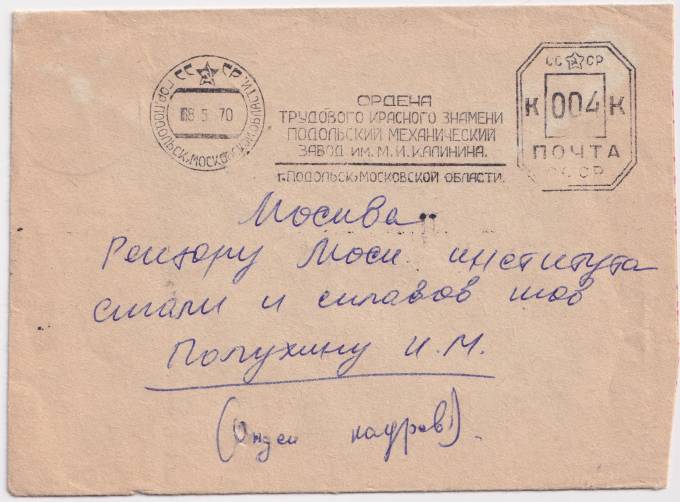 СССР
ГОР. ПОДОЛЬСК, МОСКОВСКОЙ ОБЛАСТИ
18 5 70
ОРДЕНА
ТРУДОВОГО КРАСНОГО ЗНАМЕНИ
ПОДОЛЬСКИЙ МЕХАНИЧЕСКИЙ
ЗАВОД ИМ. М. И. КАЛИНИНА.
Г. ПОДОЛЬСК, МОСКОВСКОЙ ОБЛАСТИ.
СССР
К 004 К
ПОЧТА
СССР
Москва
Ректору Моск. института
стали и сплавов тов
Полухину И. М.
(Отдел кадров).